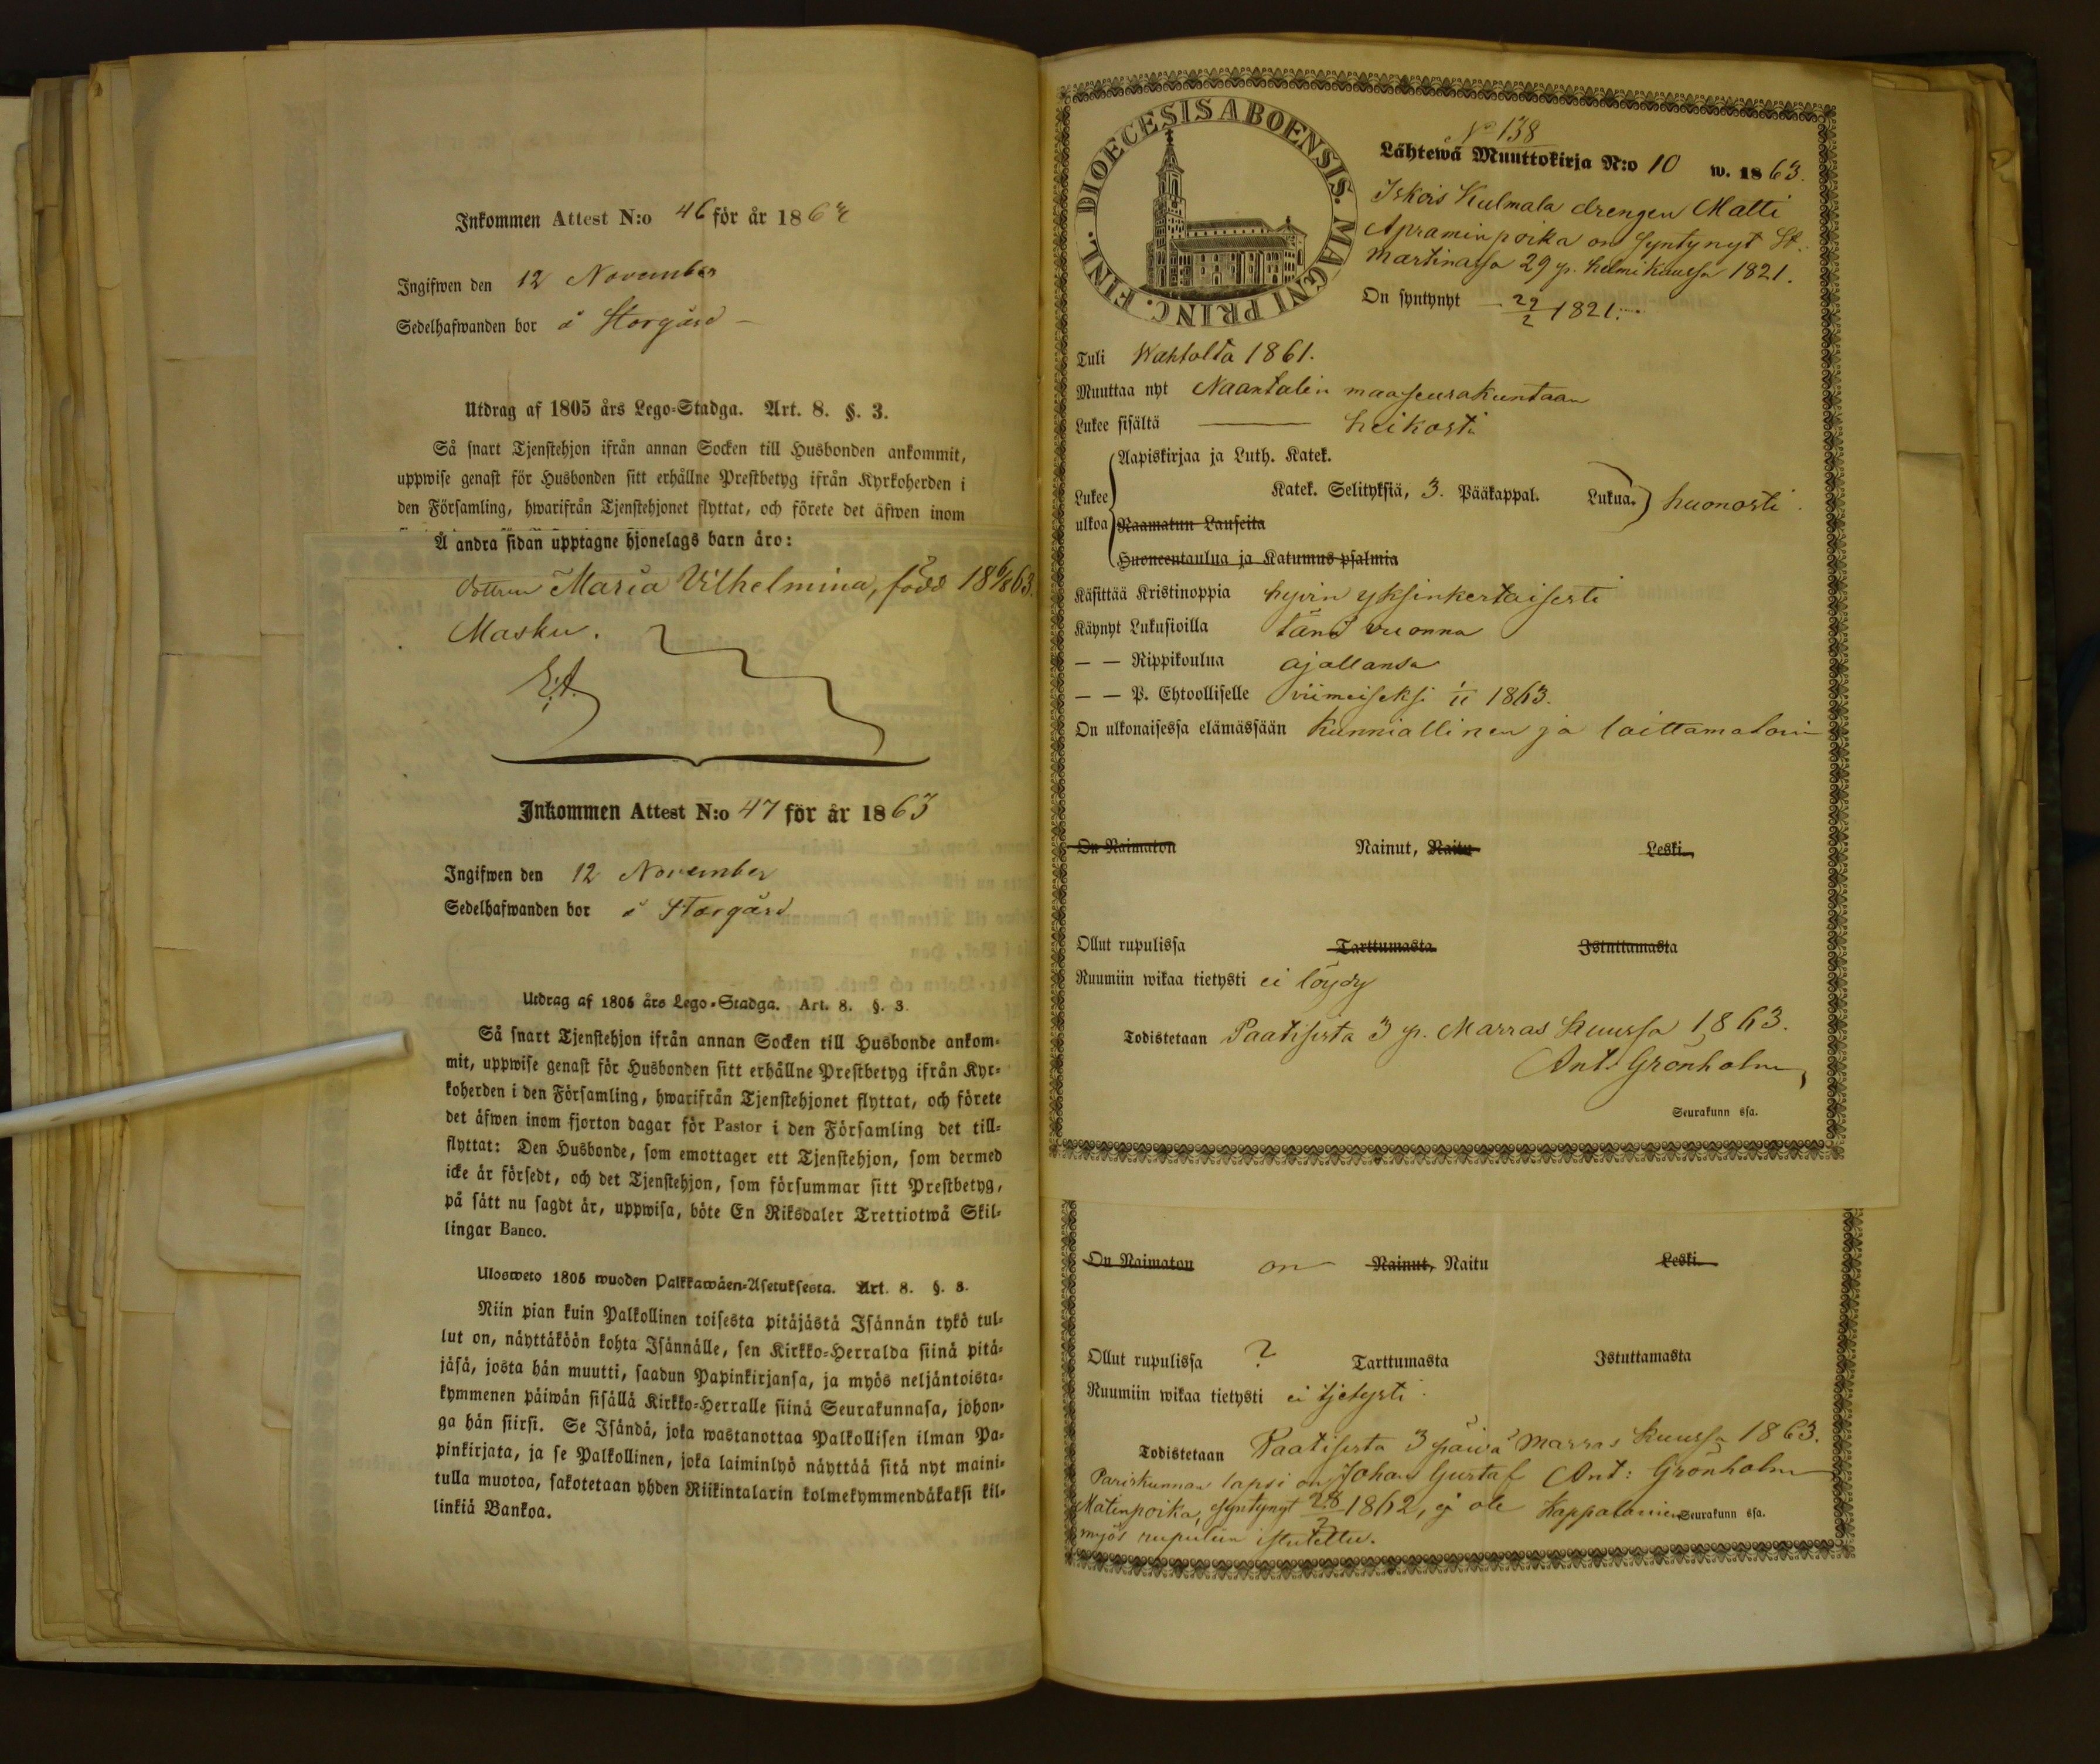 Inkommen Attest N:o 46 för år 1863
Ingifwen den 12 November
Sedelhafwanden bor å Storgård
Utdrag af 1805 års Lego-Stadga. Art. 8. §. 3.
Så snart Tjenstehjon ifrån annan Socken till Husbonden ankommit,
uppwise genast för Husbonden sitt erhållne Prestbetyg ifrån Kyrkoherden i
den Församling, hwarifrån Tjenstehjonet flyttat, och förete det äfwen inom
Å andra sidan upptagne hjonelags barn äro:
dottren Maria Vilhelmina, född 18 6/8 63.
Masku.
Inkommen Attest N:o 47 för år 1863
Ingifwen den 12 November
Sedelhafwanden bor å Storgård
Utdrag af 1805 års Lego-Stadga. Art. 8. §. 3.
Så snart Tjenstehjon ifrån annan Socken till Husbonde ankom-
mit, uppwise genast för Husbonden sitt erhållne Prestbetyg ifrån Kyr-
koherden i den Församling, hwarifrån Tjenstehjonet flyttat, och förete
det äfwen inom fjorton dagar för Pastor i den Församling det till-
flyttat: Den Husbonde, som emottager ett Tjenstehjon, som dermed
icke är försedt, och det Tjenstehjon, som försummar sitt Prestbetyg,
på sätt nu sagdt är, uppwisa, böte En Riksdaler Trettiotwå Skil-
lingar Banco.
Ulosweto 1805 wuoden Palkkawäen-Asetuksesta. Art. 8. §. 3.
Niin pian kuin Palkollinen toisesta pitäjästä Isännän tykö tul-
lut on, näyttäköön kohta Isännälle, sen Kirkko-Herralda siinä pitä-
jäsä, josta hän muutti, saadun Papinkirjansa, ja myös neljäntoista-
kymmenen päiwän sisällä Kirkko-Herralle siinä Seurakunnasa, johon-
ga hän siirsi. Se Isändä, joka wastanottaa Palkollisen ilman Pa-
pinkirjata, ja se Palkollinen, joka laiminlyö näyttää sitä nyt maini-
tulla muotoa, sakotetaan yhden Riikintalarin kolmekymmendäkaksi kil-
linkiä Bankoa.
DIOECESIS ABOENSIS. MAGNI PRINC. FINL.
No 138
Lähtewä Muuttokirja N:o 10 w. 1863.
Iskois Kulmala drengen Matti
Apraminpoika on syntynyt St.
Martinassa 29 p. helmikuussa 1821.
On syntynyt 29/2 1821.
Tuli Wahtolta 1861.
Muuttaa nyt Naantalin maaseurakuntaan
Lukee sisältä heikosti
Aapiskirjaa ja Luth. Katek.
Lukee ulkoa Katek. Selityksiä, 3. Pääkappal. Lukua. huonosti.
Raamatun Lauseita
Huoneentaulua ja Katumus-psalmia
Käsittää Kristinoppia hyvin yksinkertaisesti
Käynyt Lukusioilla tänä vuonna
— — Rippikoulua ajallansa
— — P. Ehtoolliselle viimeiseksi 1/11 1863.
On ulkonaisessa elämässään kunniallinen ja laittamatoin
On Naimaton Nainut, Naitu Leski
Ollut rupulissa Tarttumasta Istuttamasta
Ruumiin wikaa tietysti ei löydy
Todistetaan Paatisista 3 p. Marras kuussa 1863.
Ant: Grönholm,
Seurakunn ssa.
On Naimaton on Nainut, Naitu Leski
Ollut rupulissa ? Tarttumasta Istuttamasta
Ruumiin wikaa tietysti ei tjetysti.
Todistetaan Paatisista 3 päivä Marras kuussa 1863.
Pariskunnan lapsi on Johan Gustaf Ant: Grönholm
Matinpoika, syntynyt 28/7 1862, ej ole Kappalainen Seurakunn ssa.
myös rupuliin istutettu.